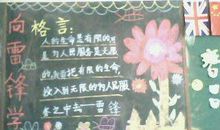 向雷锋学
格言:
人的生命是有限的可
是为人民服务是无限
的,我要把有限的生命,
投入到无限的为人民服
务之中去——雷锋